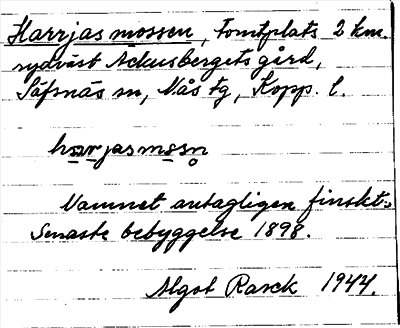 Harrjasmossen, Tomtplats 2 km.
sydväst Ackusbergets gård,
Säfsnäs sn, Nås tg, Kopp. l.
harjasmosn
Namnet antagligen finskt.
Senaste bebyggelse 1898.
Algot Rasck 1944.